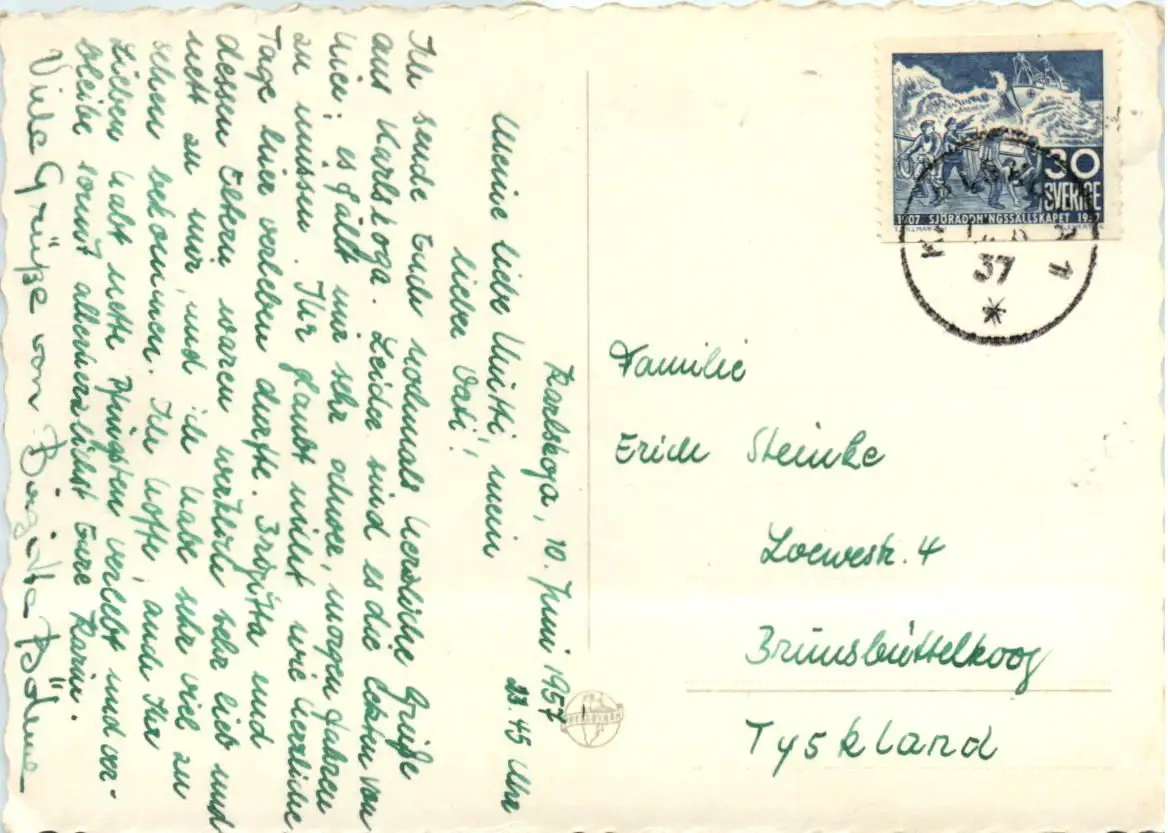 Karlskoga, 10. Juni 1957
23.45 Uhr
Meine liebe Mutti, mein
lieber Vati!
Ich sende Euch nochmals herzliche Grüße
aus Karlskoga. Leider sind es die letzten von
hier; es fällt mir sehr schwer, morgen fahren
zu müssen. Ihr glaubt nicht wie herrliche
Tage hier verleben durfte. Birgitta und
dessen Eltern waren wirklich sehr lieb und
nett zu mir, und ich habe sehr viel zu
sehen bekommen. Ich hoffe, auch Ihr
Lieben habt nette Pfingsten verlebt und ver-
bleibe somit allerherzlichst Eure Karin.
Viele Grüße von Birgitta
Familie
Erich Steinke
Loewestr. 4
Brunsbüttelkoog
Tyskland
30
SVERIGE
1907 SJÖRÄDDNINGSSÄLLSKAPET 1957
37
1